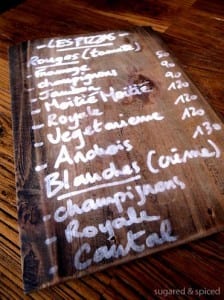 - LES PIZZAS -
Rouges (tomate)
- Fromage 50
- champignons 90
- Jambon 90
- Moitié Moitié
- Royale 120
- Vegetarienne 120
- Anchois 130
Blanches (crème)
- champignons
- Royale
- Cantal
sugared & spiced